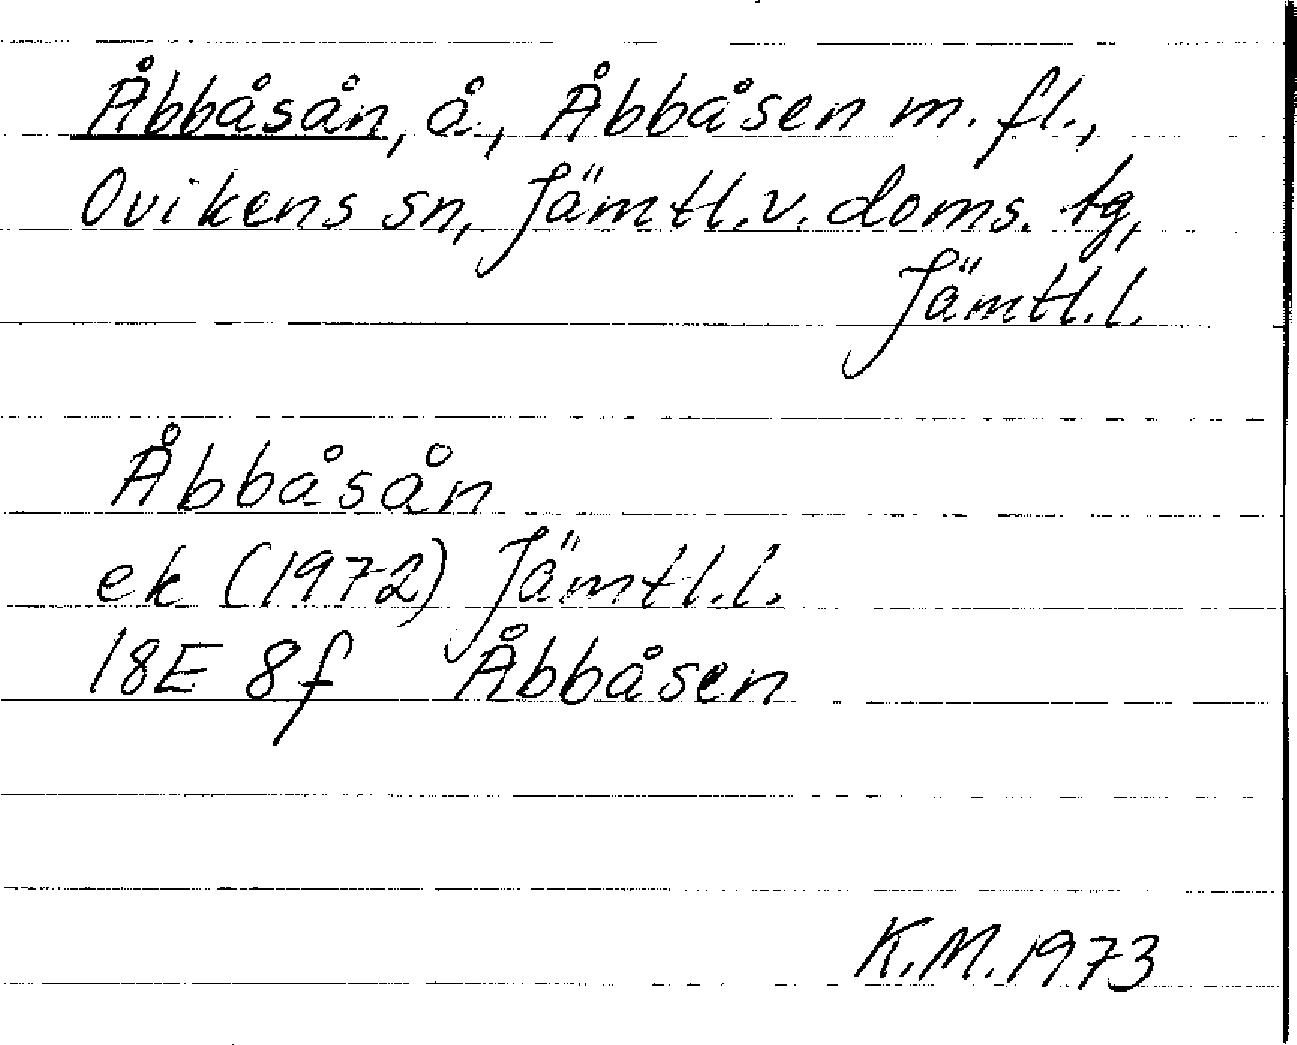 Åbbåsån, å, Åbbåsen m. fl.,
Ovikens sn, Jämtl.v. doms. tg,
Jämtl.l.
Åbbåsån
ek (1972) Jämtl.l.
18E 8f Åbbåsen
K.M. 1973